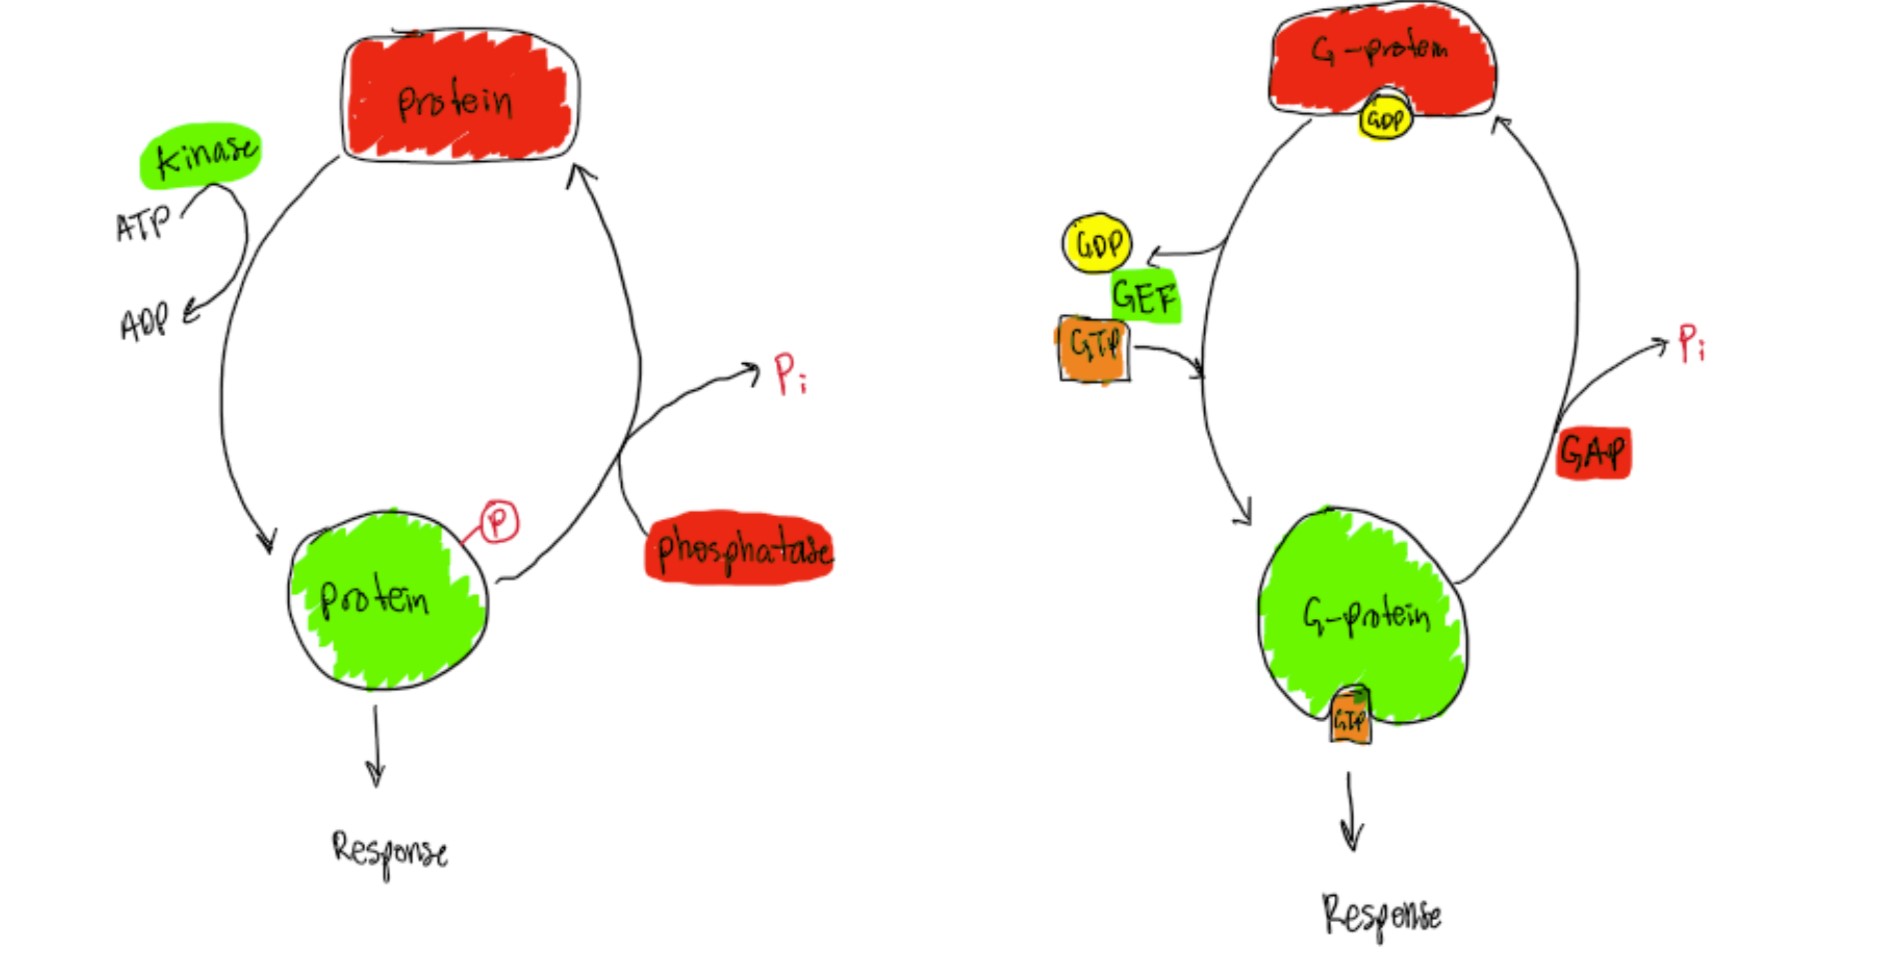 protein
kinase
ATP
ADP
Pi
P
phosphatase
protein
Response
G-protein
GDP
GDP
GEF
GTP
Pi
GAP
G-protein
GTP
Response